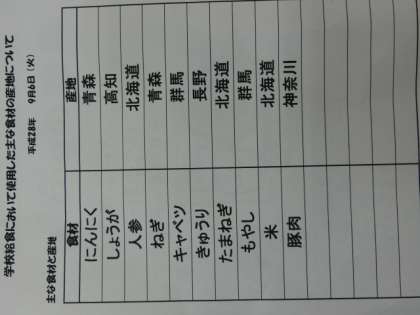 学校給食において使用した主な食材の産地について
平成28年 9月6日(火)
主な食材と産地
食材 産地
にんにく 青森
しょうが 高知
人参 北海道
ねぎ 青森
キャベツ 群馬
きゅうり 長野
たまねぎ 北海道
もやし 群馬
米 北海道
豚肉 神奈川